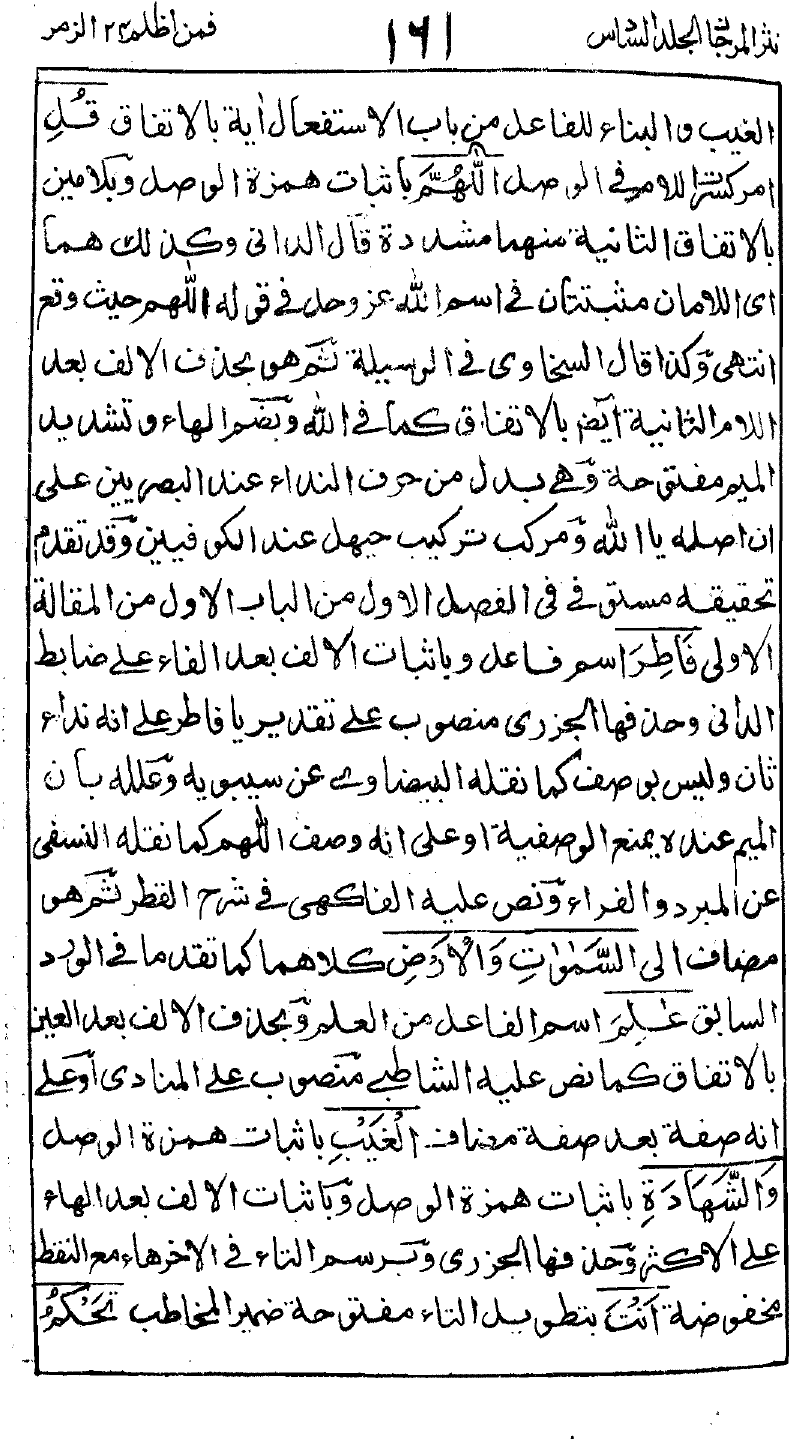 نثر المرجان الجلد السادس ١٦١ فمن اظلم ٢٤ الزمر
الغيب والبناء للفاعل من باب الاستفعال اية بالاتفاق قُلِ
امر كسرت اللام في الوصل اللّٰهُمَّ باثبات همزة الوصل وبلامين
بالاتفاق الثانية منهما مشددة قال الداني وكذلك هما
اى اللامان مثبتتان في اسم الله عز وجل في قوله اللّٰهم حيث وقع
انتهى وكذا قال السخاوى في الوسيلة ثم هو بحذف الالف بعد
اللام الثانية ايض بالاتفاق كما في اللّٰه وبضم الهاء وتشديد
الميم مفتوحة وهي بدل من حرف النداء عند البصريين على
ان اصله يا اللّٰه ومركب تركيب حيهل عند الكوفيين وقد تقدم
تحقيقه مستوفى في الفصل الاول من الباب الاول من المقالة
الاولى فَاطِرَ اسم فاعل وباثبات الالف بعد الفاء على ضابط
الداني وحذفها الجزرى منصوب على تقدير يا فاطر على انه نداء
ثان وليس بوصف كما نقله البيضاوى عن سيبويه وعلله بان
الميم عنده يمنع الوصفية او على انه وصف اللّٰهم كما نقله النسفى
عن المبرد والفراء ونص عليه الفاكهى في شرح القطر ثم هو
مضاف الى السَّمٰوٰتِ وَالْاَرْضِ كلاهما كما تقدما في الورد
السابق عٰلِمَ اسم الفاعل من العلم وبحذف الالف بعد العين
بالاتفاق كما نص عليه الشاطبي منصوب على المنادى او على
انه صفة بعد صفة مضاف الْغَيْبِ باثبات همزة الوصل
وَالشَّهَادَةِ باثبات همزة الوصل وباثبات الالف بعد الهاء
على الاكثر وحذفها الجزرى وبرسم التاء في الاخر هاء مع النقط
مخفوضة اَنْتَ بتطويل التاء مفتوحة ضمير المخاطب تَحْكُمُ